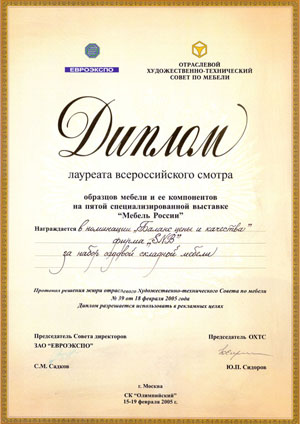 ЕВРОЭКСПО
ОТРАСЛЕВОЙ
ХУДОЖЕСТВЕННО-ТЕХНИЧЕСКИЙ
СОВЕТ ПО МЕБЕЛИ
Диплом
лауреата всероссийского смотра
образцов мебели и ее компонентов
на пятой специализированной выставке
"Мебель России"
Награждается в номинации „Баланс цены и качества"
фирма
за набор садовой складной мебели
Протокол решения жюри отраслевого Художественно-технического Совета по мебели
№ 39 от 18 февраля 2005 года
Диплом разрешается использовать в рекламных целях
Председатель Совета директоров
ЗАО "ЕВРОЭКСПО"
Председатель ОХТС
С.М. Садков
Ю.П. Сидоров
г. Москва
СК "Олимпийский"
15-19 февраля 2005 г.